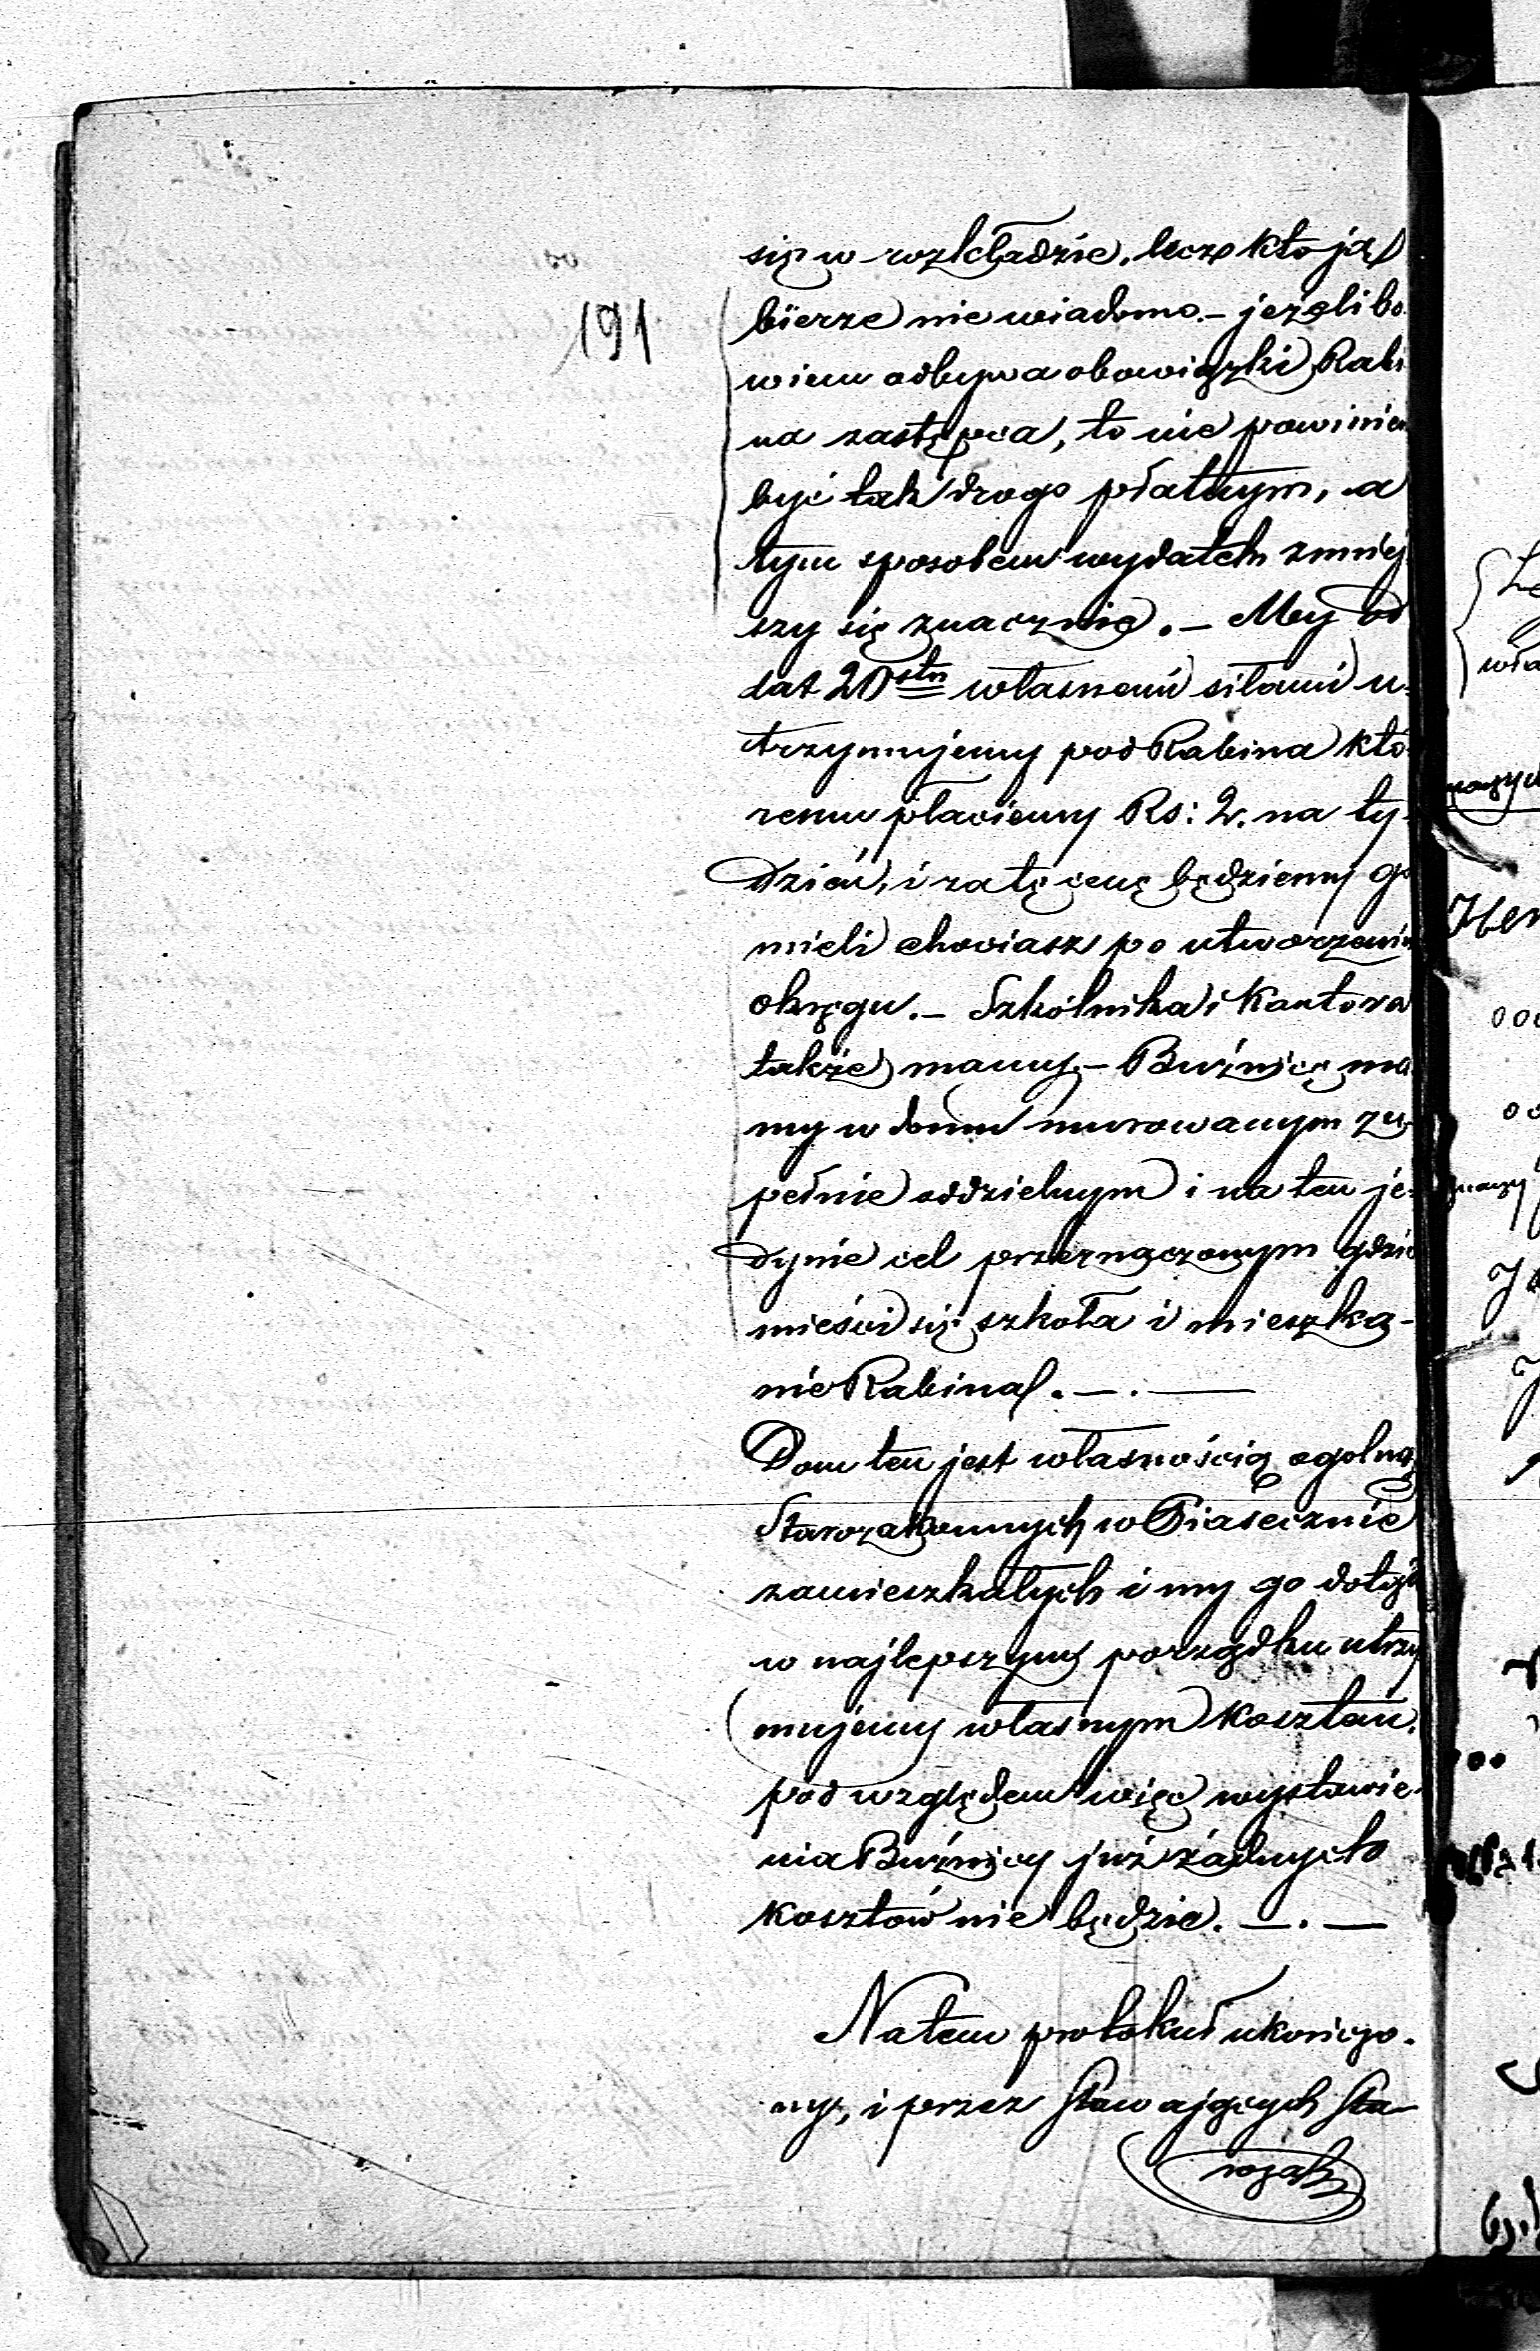 191
się w rozkładzie, lecz kto ją
bierze nie wiadomo. – jeżeli bo
wiem odbywa obowiązki Rabi
na zastępca, to nie powinien
być tak drogo płatnym, a
tym sposobem wydatek zmniej
szy się znacznie. – My od
lat 20stu własnemi siłami u-
trzymujemy pod Rabina któ-
remu płaciemy Rs: 2. na ty-
dzień, i za tę cenę będziemy go
mieli chociasz po utworzeniu
okręgu. – Szkólnika i Kantora
także mamy – Buźnicę ma
my w domu murowanym zu-
pełnie oddzielnym i na ten je-
dynie cel przeznaczonym gdzie
mieści się szkoła i mieszka-
nie Rabina. – . –
Dom ten jest własnością ogolną
Starozakonnych w Piasecznie
zamieszkałych i my go dotąd
w najlepszym porządku utrzy
mujemy własnym kosztem.
pod względem więc wystawie-
nia Buźnicy już żadnych
kosztów nie będzie. – . –
Na tem protokuł ukończo-
ny, i przez stawających sta-
rozak